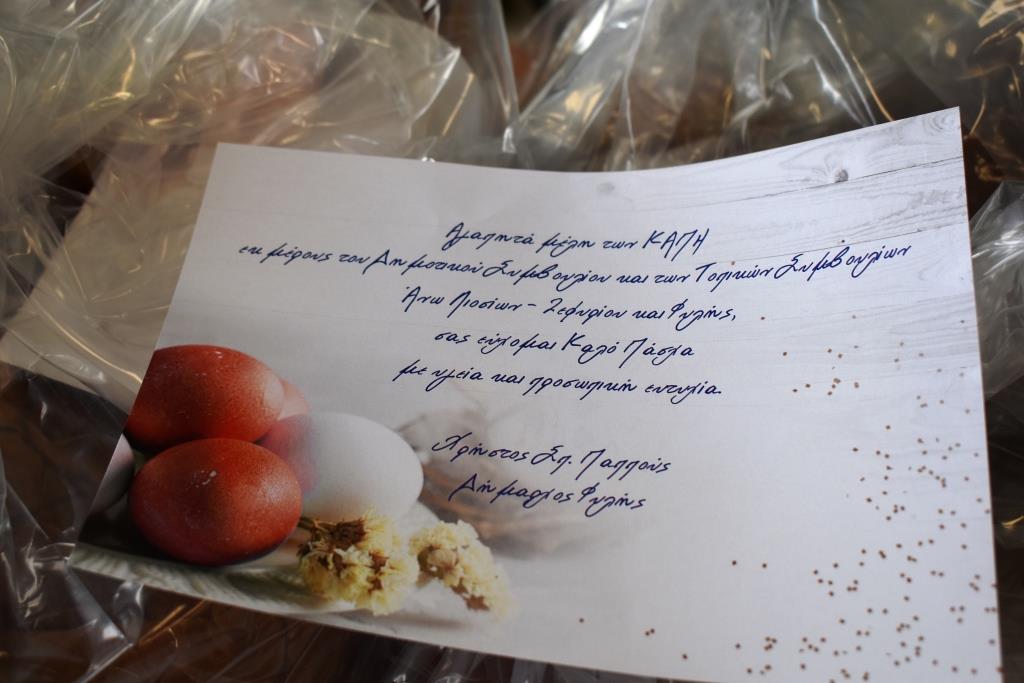 Αγαπητά μέλη των ΚΑΠΗ
εκ μέρους του Δημοτικού Συμβουλίου και των Τοπικών Συμβουλίων
Άνω Λιοσίων - Ζεφυρίου και Φυλής,
σας εύχομαι Καλό Πάσχα
με υγεία και προσωπική ευτυχία.
Χρήστος Σπ. Παππούς
Δήμαρχος Φυλής